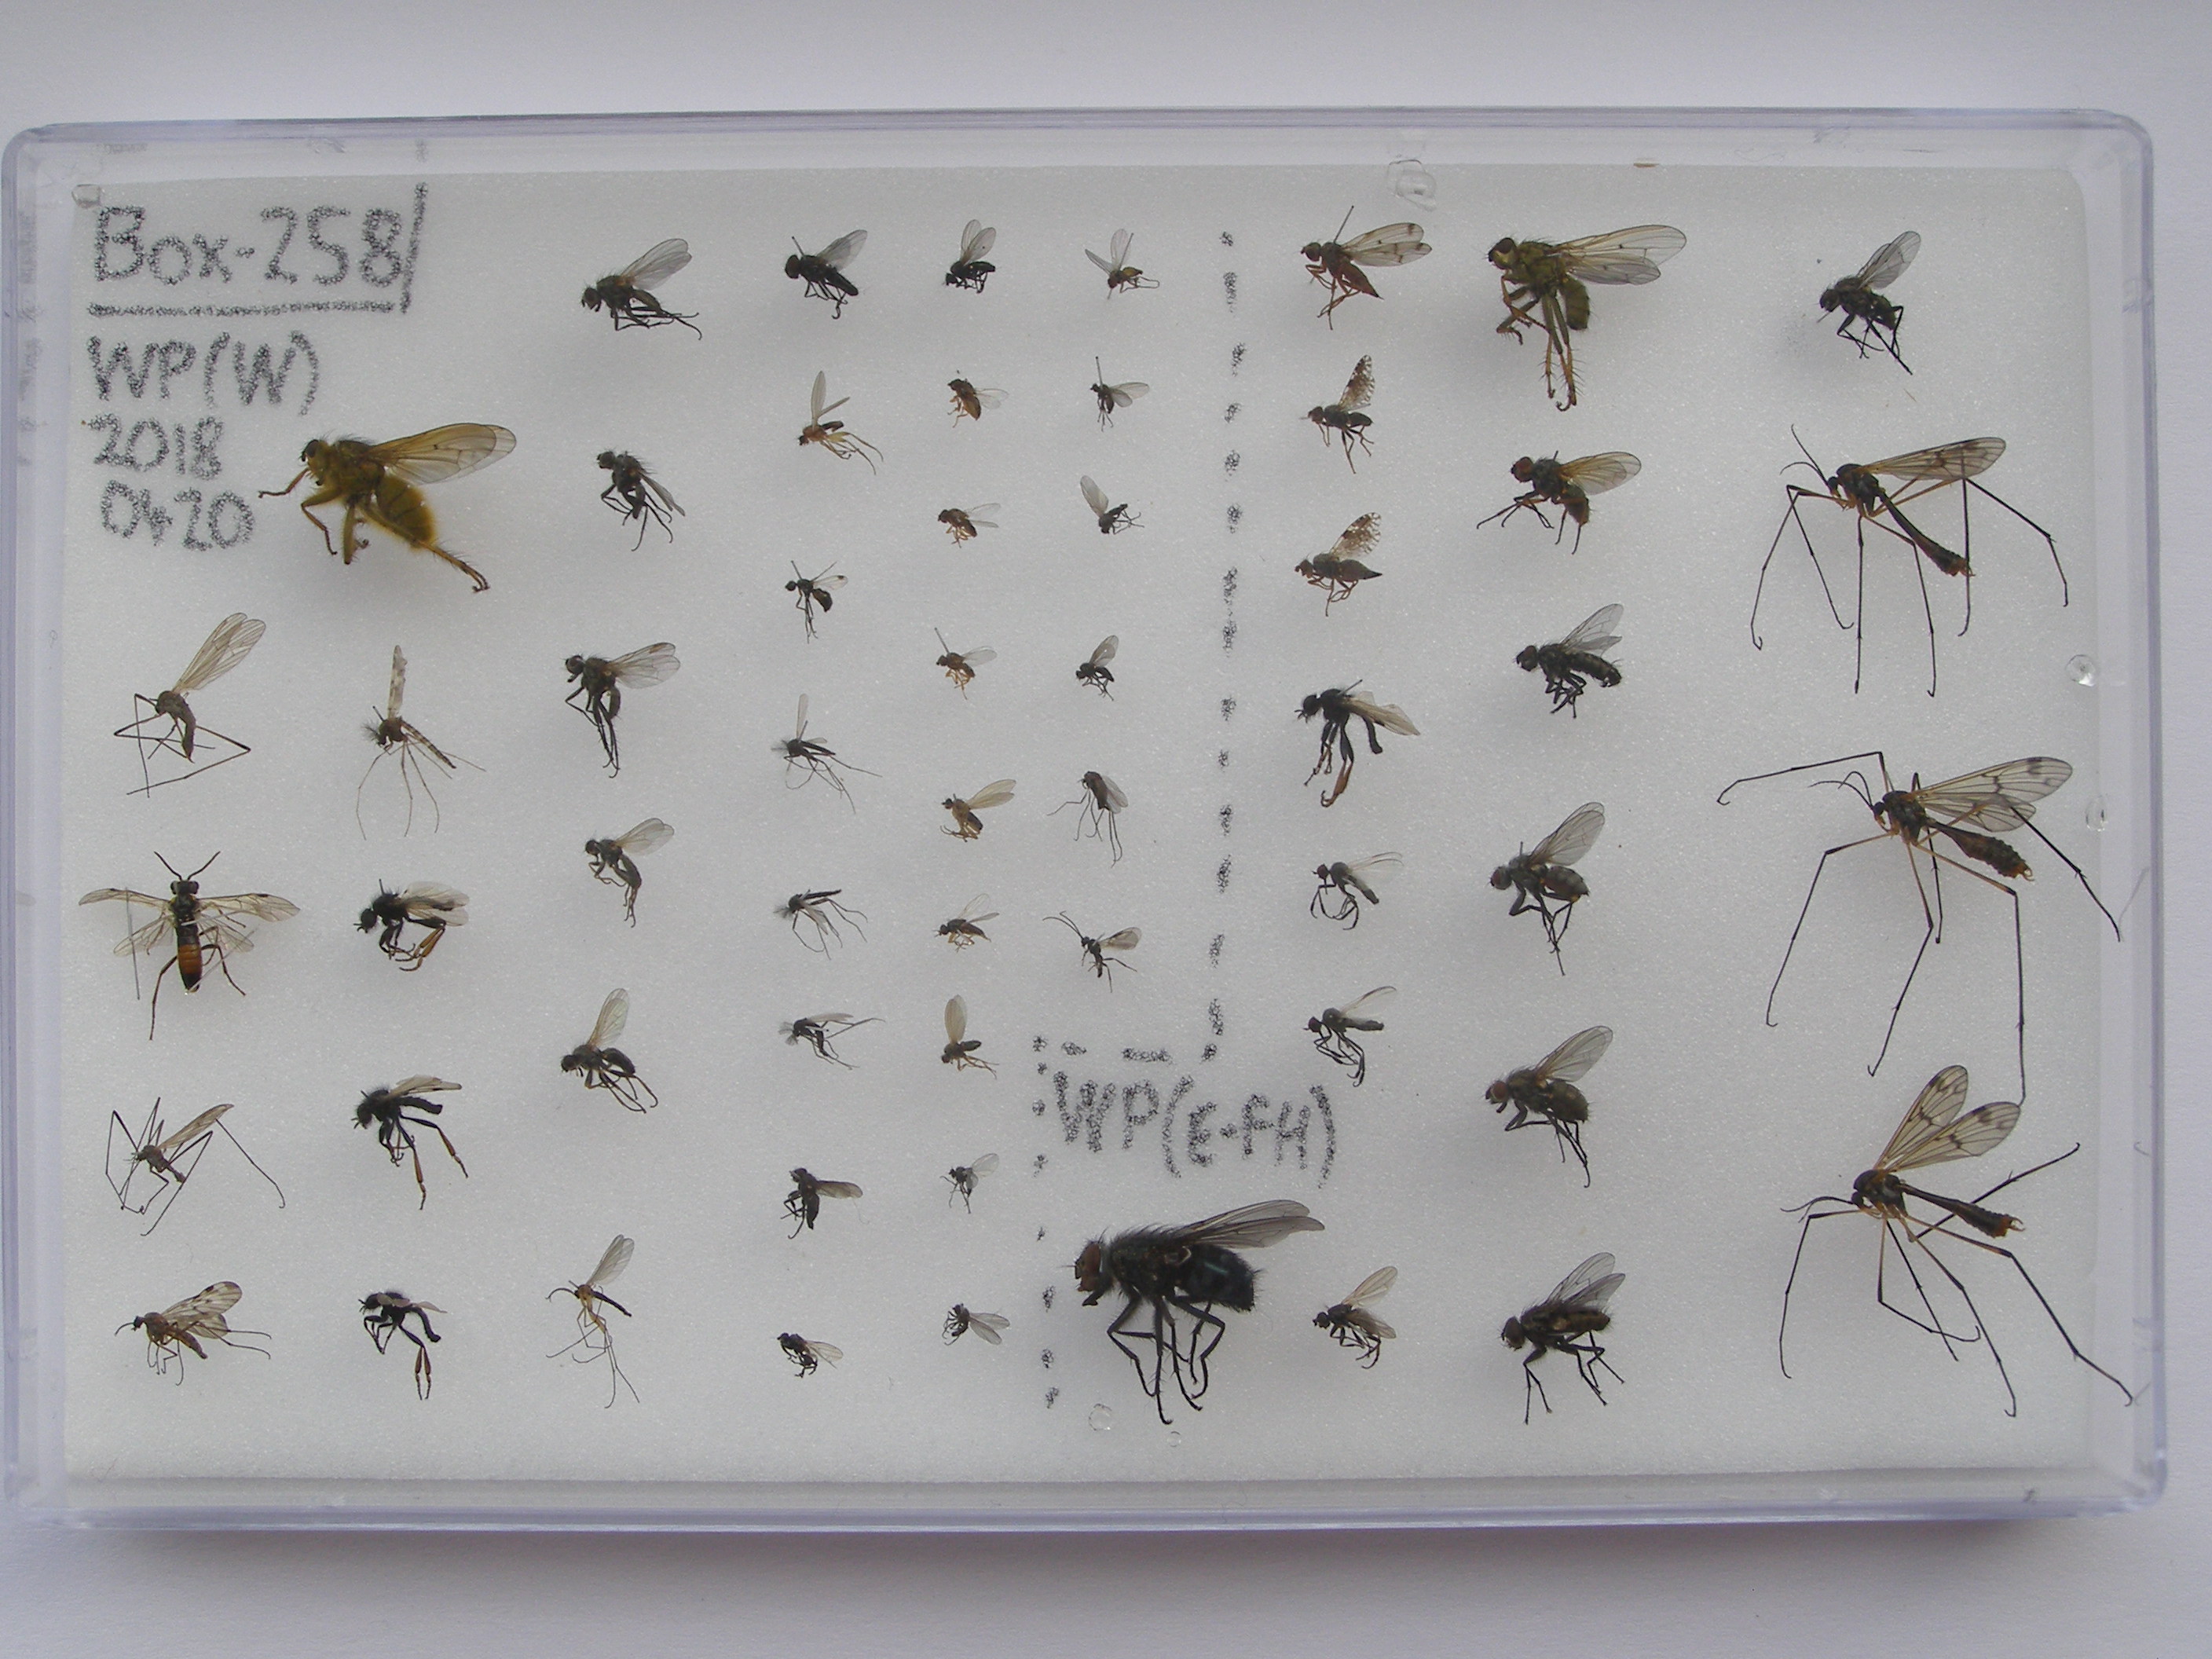 Box-258
WP(W)
2018
0420
WP(E-FH)